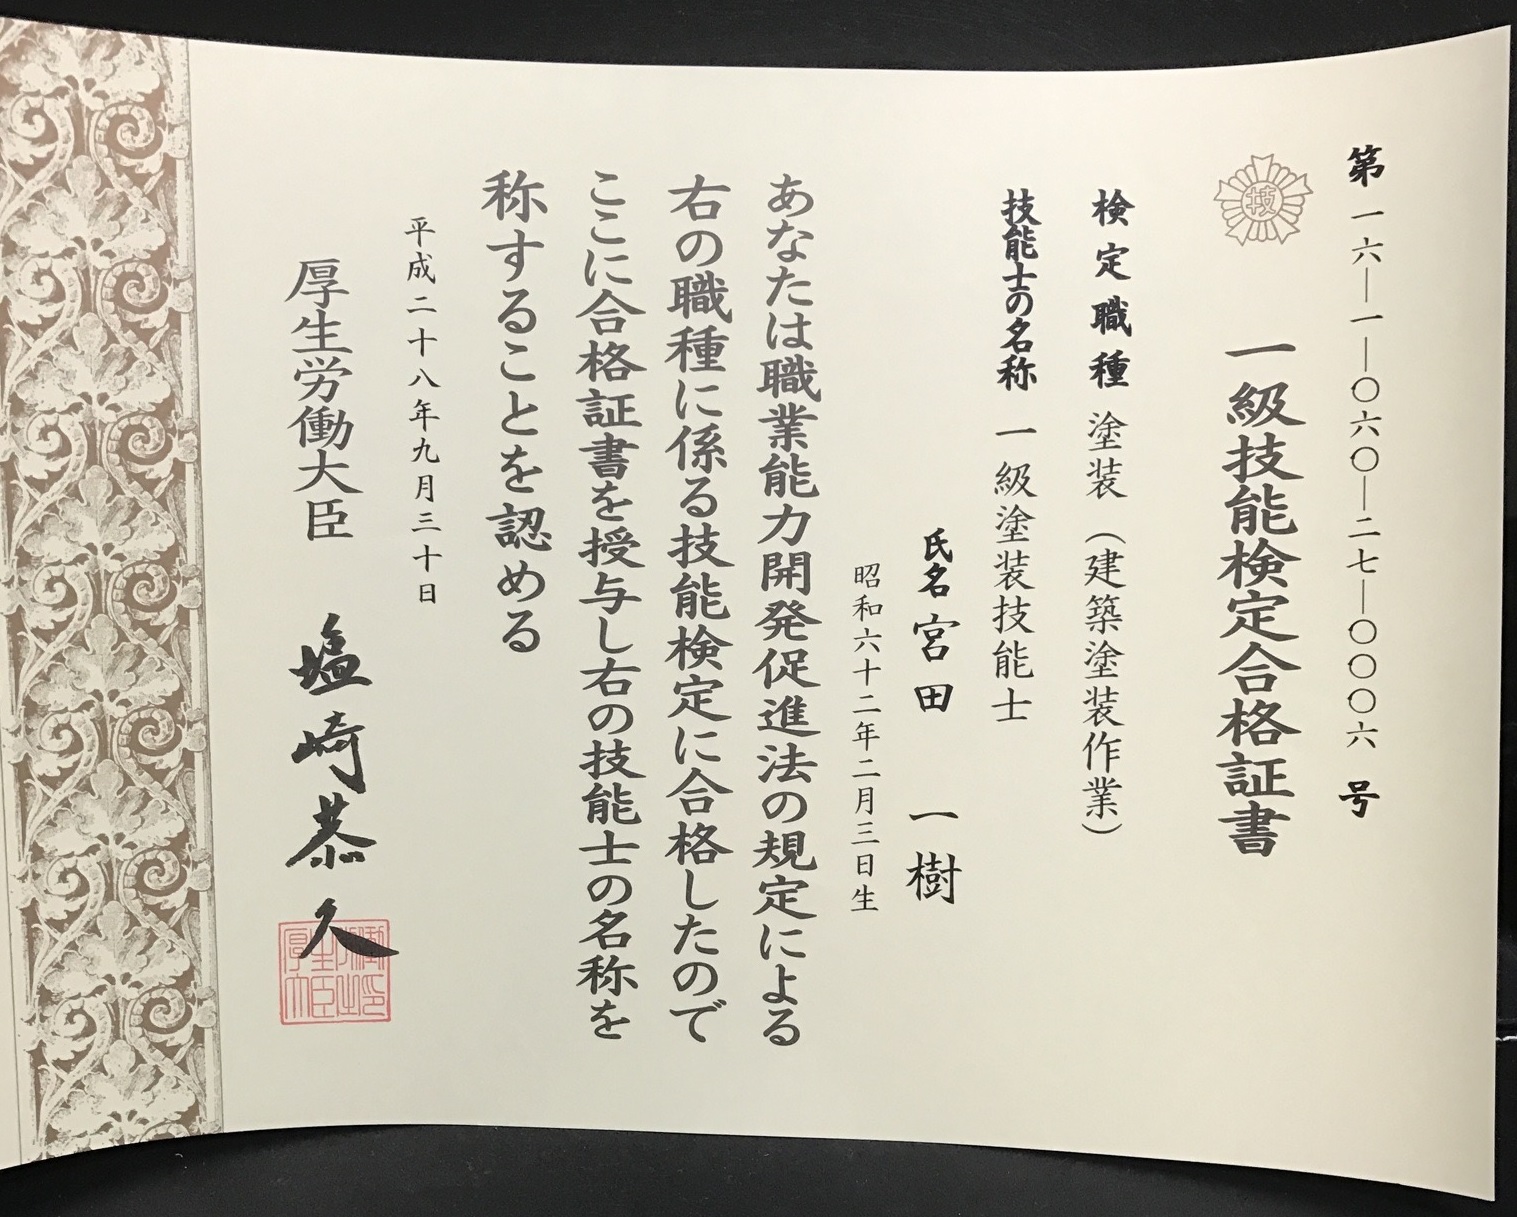 第一六―一―〇六〇―二七―〇〇〇六号
技
一級技能検定合格証書
検定職種 塗装（建築塗装作業）
技能士の名称 一級塗装技能士
氏名 宮田 一樹
昭和六十二年二月三日生
あなたは職業能力開発促進法の規定による
右の職種に係る技能検定に合格したので
ここに合格証書を授与し右の技能士の名称を
称することを認める
平成二十八年九月三十日
厚生労働大臣 塩崎恭久